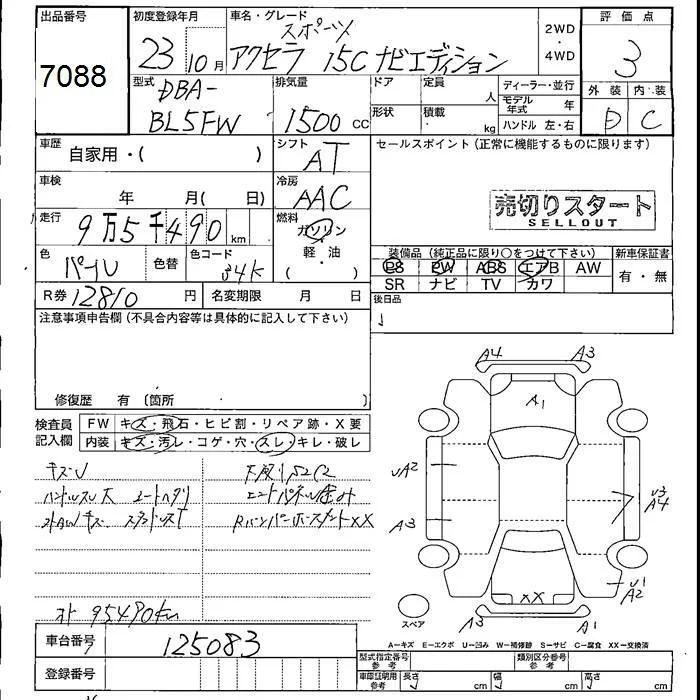 出品番号 初度登録年月 車名・グレード 2WD・4WD 評価点
7088 23 10月 アクセラ スポーツ 15C ナビエディション 3
型式 DBA-BL5FW 排気量 1500 CC ドア 定員 人 ディーラー・並行 外装 内装
形状 積載 kg モデル年式 年 D C
ハンドル 左・右
車歴 自家用・( ) シフト AT セールスポイント(正常に機能するものに限ります)
車検 年 月( 日) 冷房 AAC 売切りスタート
SELLOUT
走行 9万5千490 km 燃料 ガソリン・軽・油 ( )
色 パール 色替 色コード 34K 装備品(純正品に限り○をつけて下さい) 新車保証書
PS PW ABS エアB AW 有・無
SR ナビ TV カワ
R券 12810円 名変期限 月 日 後日品
注意事項申告欄(不具合内容等は具体的に記入して下さい)
修復歴 有 〔箇所
検査員記入欄 FW キズ・飛石・ヒビ割・リペア跡・X要
内装 キズ・汚レ・コゲ・穴・スレ・キレ・破レ
キズU
ハンドルスレ大
外AWキズ
メト 95490km
A4 A3
A1
UA2
A3
U3
A4
XX
U1
A2
A3 A1
スペア
A=キズ E=エクボ U=凹み W=補修跡 S=サビ C=腐食 XX=交換済
車台番号 125083 型式指定番号 参考 類別区分番号 参考
登録番号 車庫証明用 参考 長さ cm 幅 cm 高さ cm